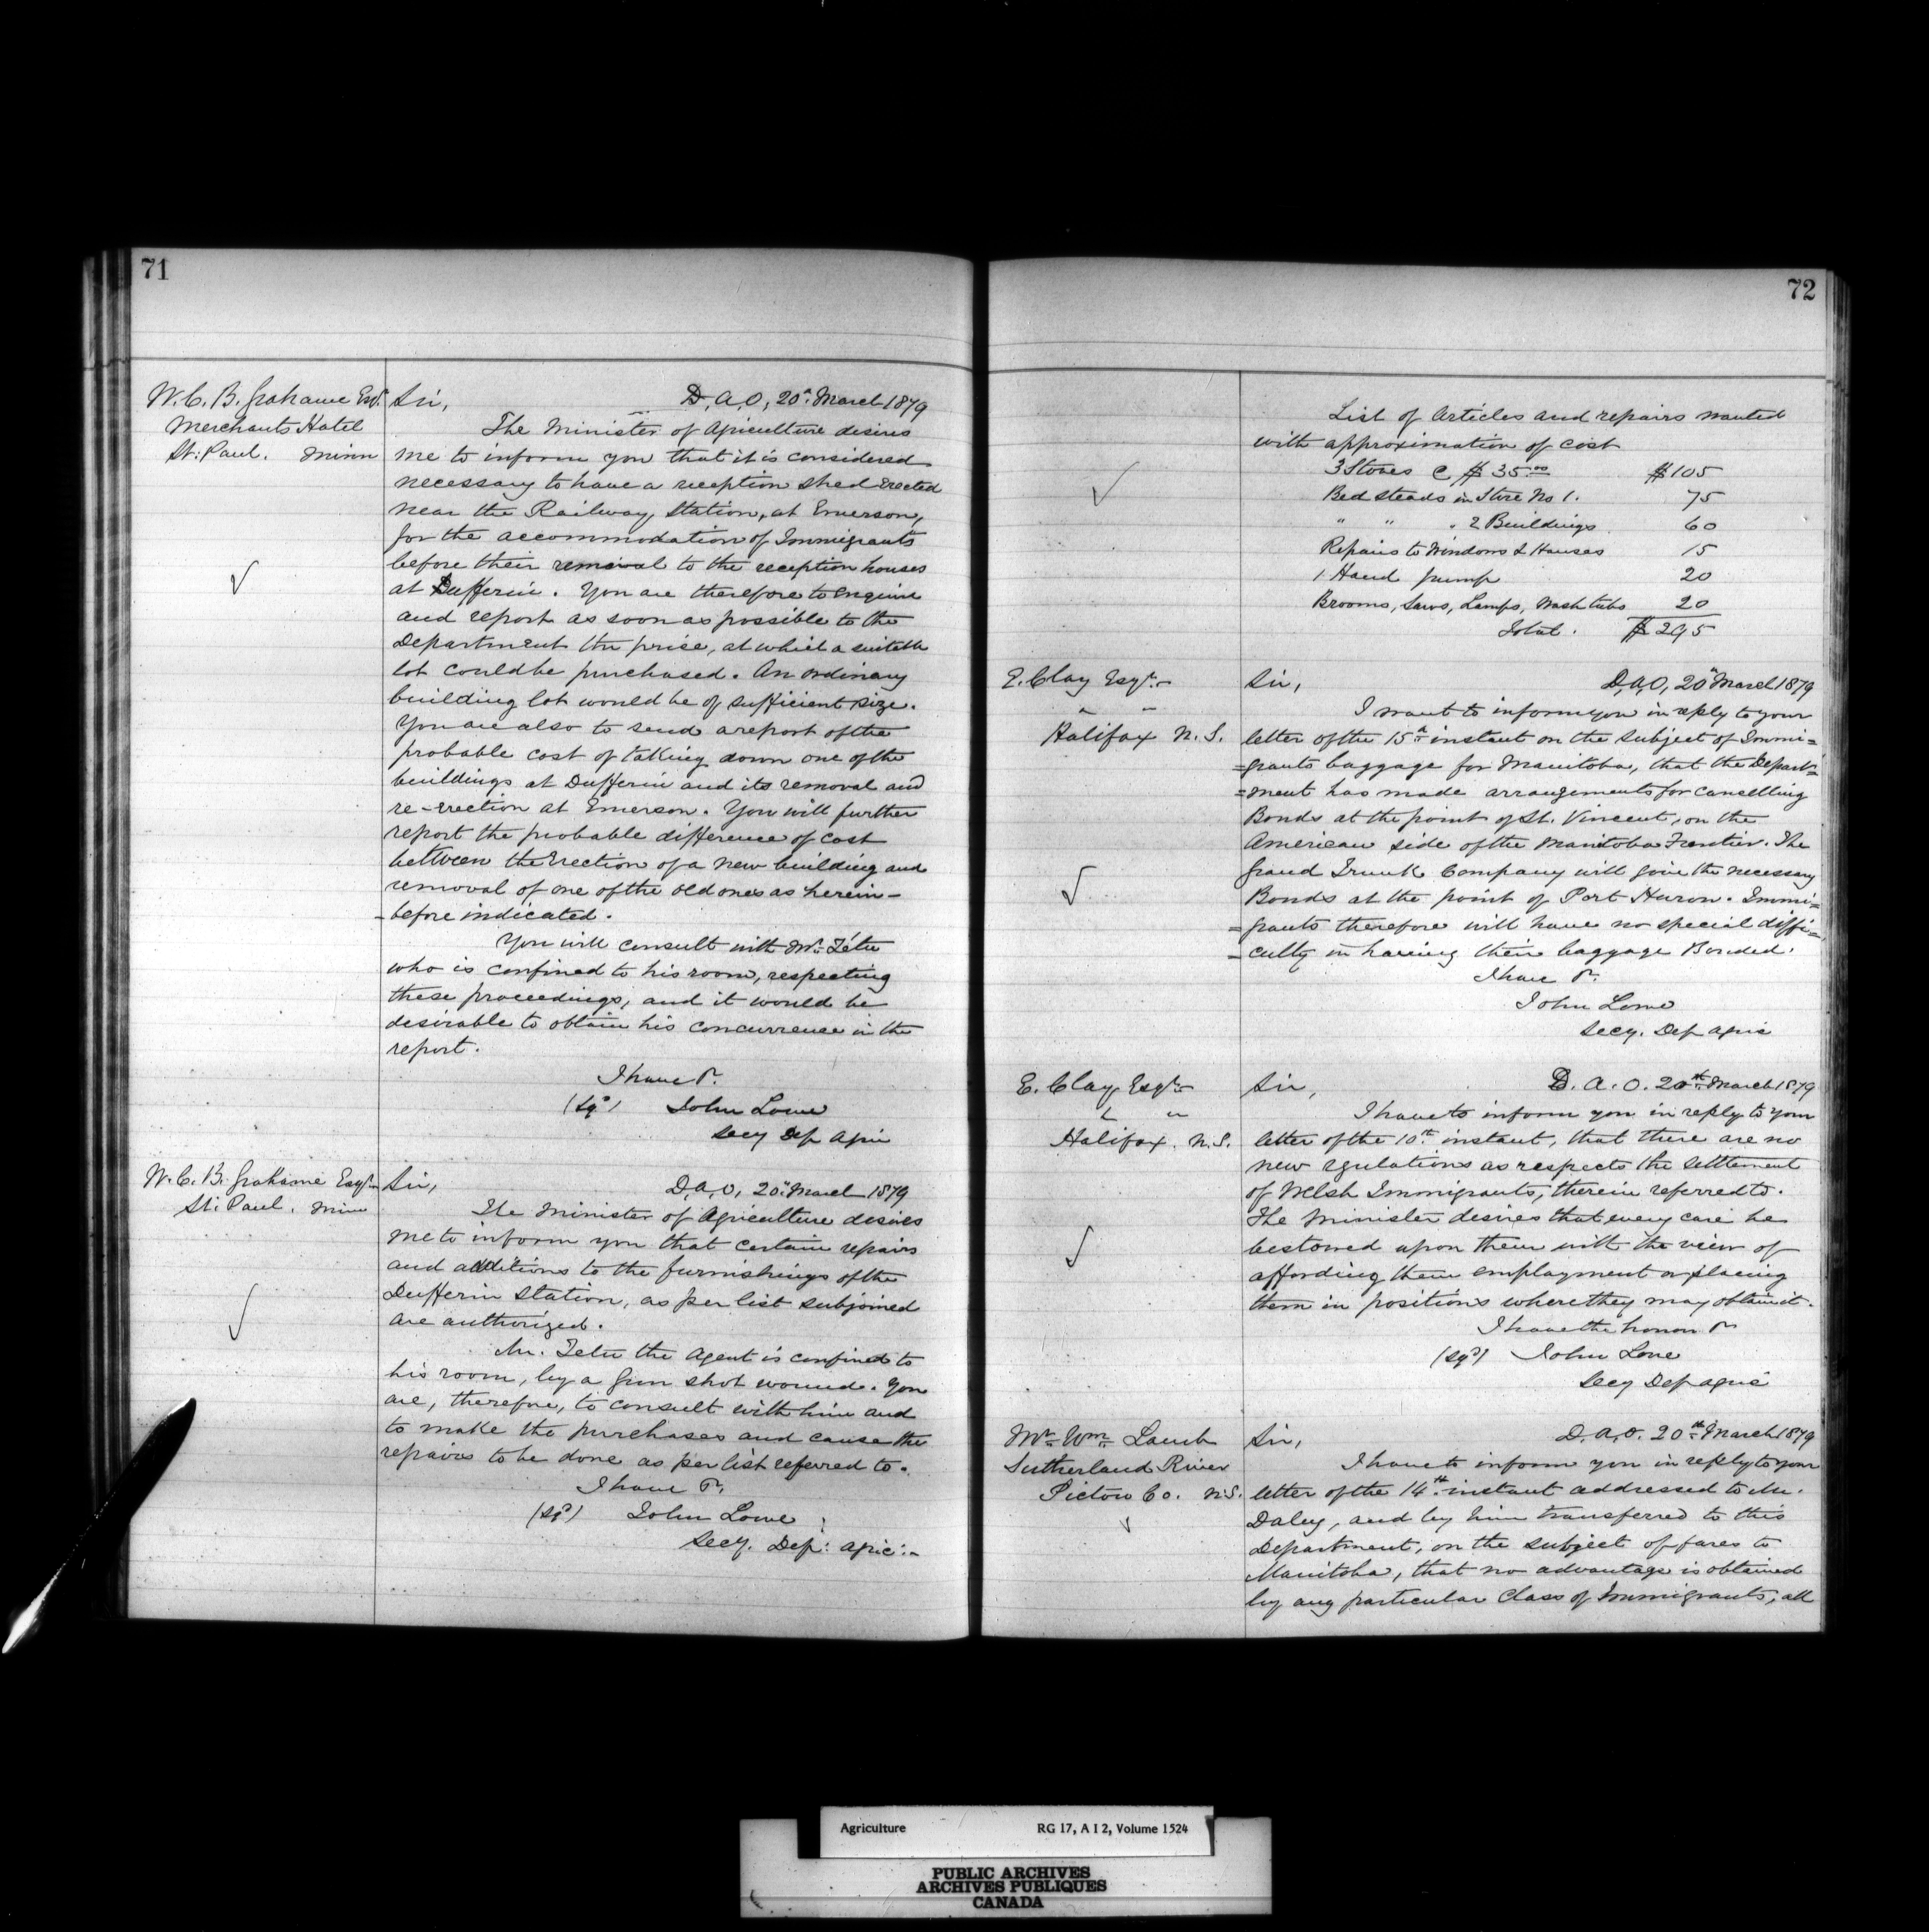 71
W. C. B. Grahame Esq.
Merchants Hotel
St: Paul. Minn
Sir, D. A. O, 20th March 1879
The Minister of Agriculture desires
me to inform you that it is considered
necessary to have a reception shed erected
near the Railway Station, at Emerson,
for the accommodation of Immigrants
before their removal to the reception houses
at Dufferin. You are therefore to enquire
and report as soon as possible to the
Department the prise, at which a suitable
lot could be purchased. An ordinary
building lot would be of sufficient size.
You are also to send a report of the
probable cost of taking down one of the
buildings at Dufferin and its removal and
re-erection at Emerson. You will further
report the probable difference of cost
between the Erection of a new building and
removal of one of the old ones as herein-
-before indicated.
You will consult with Mr. Tétu
who is confined to his room, respecting
these proceedings, and it would be
desirable to obtain his concurrence in the
report.
I have &c.
(Sgd) John Lowe
Secy Dep Agric
W. C. B. Grahame Esqr
St: Paul. Minn
Sir, D. A. O, 20th March 1879
The Minister of Agriculture desires
me to inform you that certain repairs
and additions to the furnishings of the
Dufferin Station, as per list subjoined
are authorized.
Mr. Tetu the Agent is confined to
his room, by a Gun shot wound. You
are, therefore, to consult with him and
to make the purchases and cause the
repairs to be done as per list referred to.
I have &c.
(Sgd) John Lowe
Secy. Dep: Agric:-
72
List of Articles and repairs wanted
with approximation of cost
3 Stoves @ $35.00 $105
Bed steads in Store No 1. 75
" " " 2 Buildings 60
Repairs to Windows & Houses 15
1 Hand pump 20
Brooms, Saws, Lamps, Wash tubs 20
Total. $295
E. Clay Esqr.
" "
Halifax N. S.
Sir, D. A. O, 20th March 1879
I want to inform you in reply to your
letter of the 15th instant on the subject of Immi=
=grants baggage for Manitoba, that the Depart=
=ment has made arrangements for cansellling
Bonds at the point of St. Vincent, on the
American side of the Manitoba Frontier. The
Grand Trunk Company will give the necessary
Bonds at the point of Port Huron. Immi=
=grants therefore will have no special diffi=
=culty in having their baggage Bonded.
I have &c.
John Lowe
Secy. Dep Agric
E. Clay Esqr.
" "
Halifax. N.S.
Sir, D. A. O. 20th March 1879
I have to inform you in reply to your
letter of the 10th instant, that there are no
new regulations as respects the settlement
of Welsh Immigrants, therein referred to.
The Minister desires that every care be
bestowed upon them with the view of
affording them employment or placing
them in positions where they may obtain it.
I have the honor &c
(Sgd) John Lowe
Secy Dep Agric
Mr. Wm. Lamb
Sutherland River
Pictou Co. N.S.
Sir, D. A. O. 20th March 1879
I have to inform you in reply to your
letter of the 14th instant addressed to Mr.
Daley, and by him transferred to this
Department, on the subject of fares to
Manitoba, that no advantage is obtained
by any particular Class of Immigrants, all
Agriculture RG 17, A I 2, Volume 1524
PUBLIC ARCHIVES
ARCHIVES PUBLIQUES
CANADA